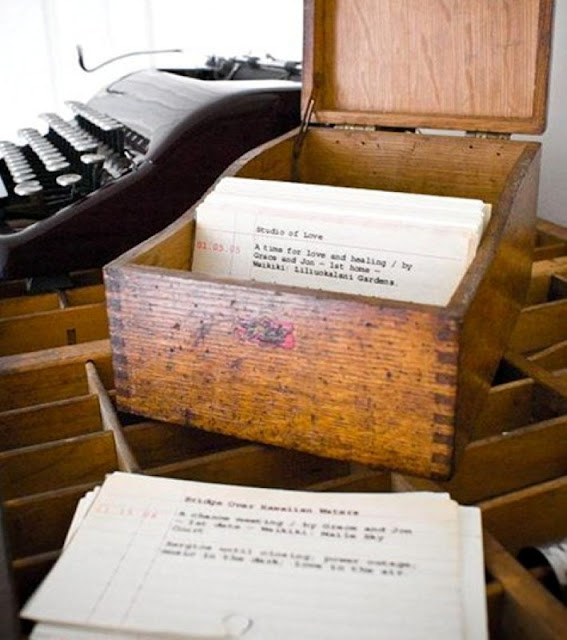 Studio of Love
01.03.05
A time for love and healing / by
Grace and Jon — 1st home —
Waikiki: Liliuokalani Gardens.
Bridge Over Hawaiian Waters
A chance meeting / by Grace and Jon
— 1st date — Waikiki: Maile Sky
Court
until closing; power outage,
music in the dark; love in the air.